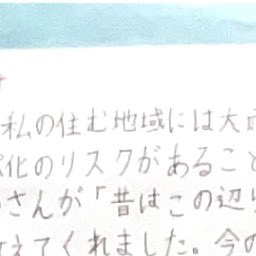 私の住む地域には大
化のリスクがあるこ
さんが「昔はこの辺
えてくれました。今の